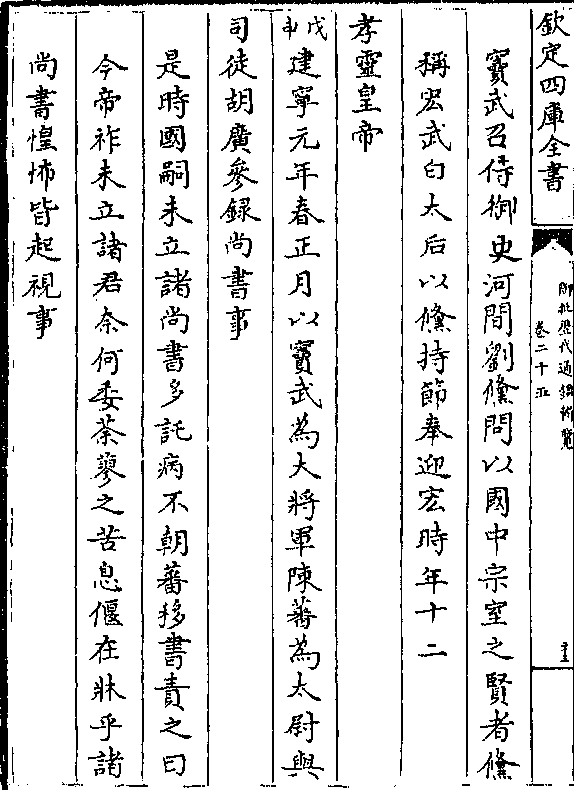 欽定四庫全書
御批歷代通鑑輯覽
卷二十五
竇武召侍御史河間劉儵問以國中宗室之賢者儵
稱宏武白太后以儵持節奉迎宏時年十二
孝靈皇帝
戊申建寧元年春正月以竇武為大將軍陳蕃為太尉與
司徒胡廣參録尚書事
是時國嗣未立諸尚書多託病不朝蕃移書責之曰
今帝祚未立諸君奈何委荼蓼之苦息偃在牀乎諸
尚書惶怖皆起視事